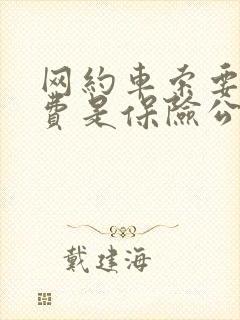 网约車索要
費是保險公
戴建海